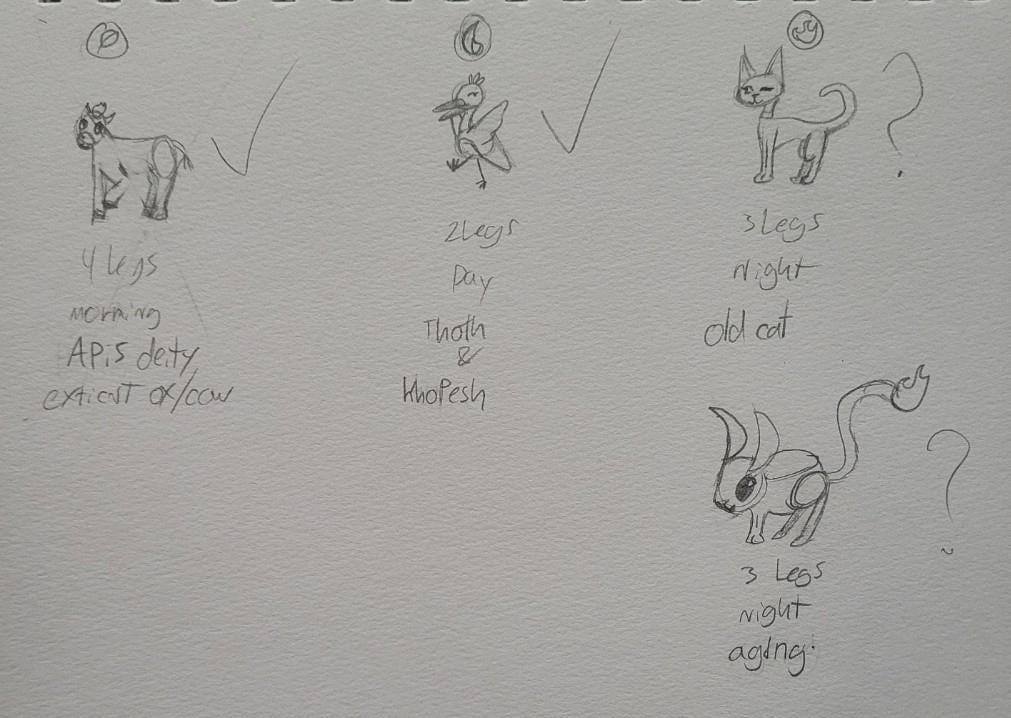 4 legs
morning
APiS deity,
exticst ox/cow
2 Legs
Day
Thoth
&
KhoPesh
?
3 Legs
Night
old cat
?
3 Legs
Night
agdng.